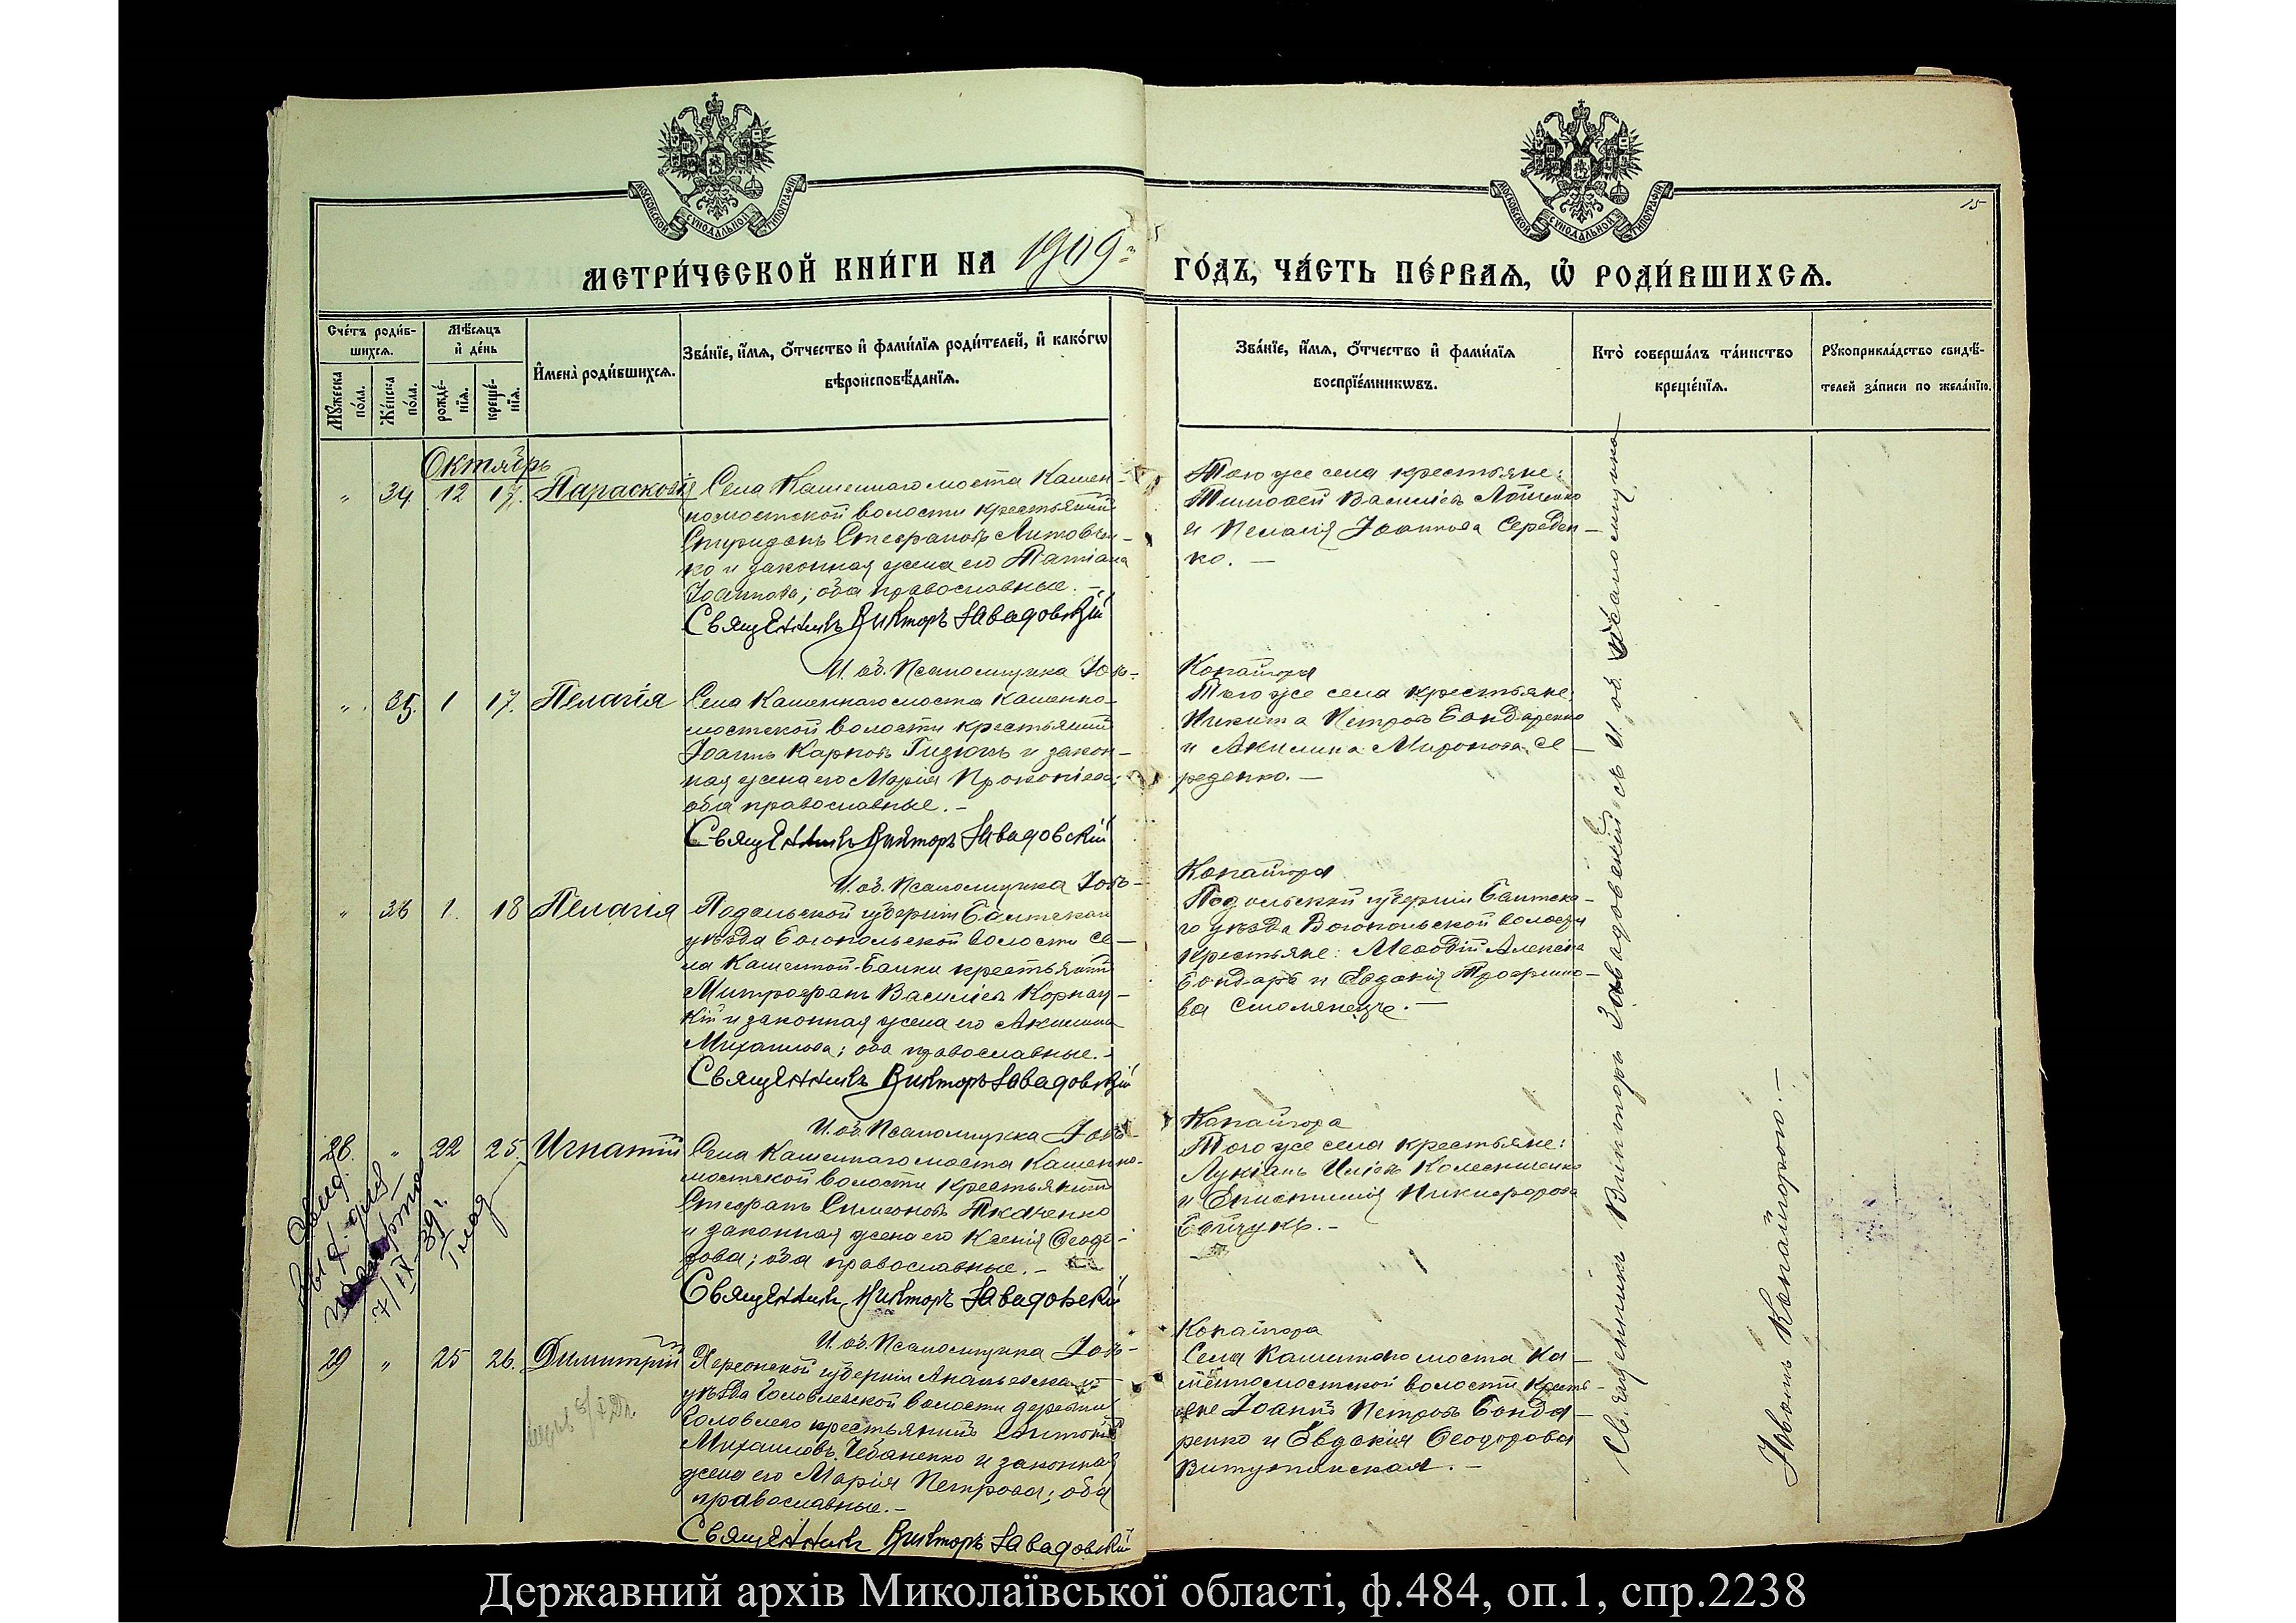 15
МОСКОВСКОЙ СѴНОДАЛЬНОЙ ТИПОГРАФІИ
МОСКОВСКОЙ СѴНОДАЛЬНОЙ ТИПОГРАФІИ
МЕТРИ́ЧЕСКОЙ КНИ́ГИ НА 1909 ГО́ДЪ, ЧА́СТЬ ПЕ́РВАѦ, Ѽ РОДИ́ВШИХСѦ.
Сче́тъ роди́в-
шихсѧ.
Мꙋжеска по́ла.
Же́нска по́ла.
Мѣ́сѧцъ
и҆ де́нь
рожде́-
нїѧ.
креще́-
нїѧ.
И҆мена̀ роди́вшихсѧ.
Зва́нїе, и҆́мѧ, ѻ҆́тчество и҆ фами́лїѧ роди́телей, и҆ како́гѡ
вѣроисповѣ́данїѧ.
Зва́нїе, и҆́мѧ, ѻ҆́тчество и҆ фами́лїѧ
воспрїе́мникѡвъ.
Кто̀ соверша́лъ та́инство
креще́нїѧ.
Рꙋкоприкла́дство свидѣ́-
телей за́писи по жела́нїю.
Октябрь
" 34 12 17. Параскевія
Села Каменнаго моста Камен-
номостской волости крестьянинъ
Спиридонъ Стефановъ Литовчен-
ко и законная жена его Татіана
Іоаннова; оба православные. –
Священникъ Викторъ Завадовскій
И. об. Псаломщика Іовъ-
Того же села крестьяне:
Тимофей Василіевъ
и Пелагія Іоаннова Середен-
ко. –
Копайгора
" 35. 1 17. Пелагія
Села Каменнаго моста Каменно-
мостской волости крестьянинъ
Іоаннъ Карповъ и закон-
ная жена его Марія Прокопіева;
оба православные. –
Священникъ Викторъ Завадовскій
И. об. Псаломщика Іовъ-
Того же села крестьяне:
Никита Петровъ Бондаренко
и Акилина Миронова Се-
реденко. –
Копайгора
" 36 1. 18 Пелагія
Подольской губерніи Балтскаго
уѣзда Богопольской волости се-
ла Каменной-Балки крестьянинъ
Митрофанъ Василіевъ Корнац-
кій и законная жена его Акилина
Михаилова; оба православные. –
Священникъ Викторъ Завадовскій
И. об. Псаломщика Іовъ-
Подольской губерніи Балтска-
го уѣзда Богопольской волости
крестьяне: Мефодій Алексіевъ
Бондарь и Евдокія Трофимо-
ва Смолянецъ. –
Копайгора
28. " 22 25. Игнатій
Села Каменнаго моста Каменно-
мостской волости крестьянинъ
Стефанъ Симеоновъ Ткаченко
и законная жена его Ксенія Ѳеодо-
рова; оба православные. –
Священникъ Викторъ Завадовскій
И. об. Псаломщика Іовъ-
Того же села крестьяне:
Лукіанъ Иліевъ Колесниченко
и Епистимія Никифорова
Байчукъ. –
Копайгора
7/IX-39 г.
29 " 25 26. Димитрій
Херсонской губерніи Ананьевскаго
уѣзда Головлевской волости деревни
Головлево крестьянинъ Антоній
Михаиловъ Чебаненко и законная
жена его Марія Петрова; оба
православные. –
Священникъ Викторъ Завадовскій
Села Каменнаго моста Ка-
менномостской волости кресть-
яне Іоаннъ Петровъ Бонда-
ренко и Евдокія Ѳеодорова
Витушинская. –
Священникъ Викторъ Завадовскій съ и. об. псаломщика
Іовомъ Копайгорою. –
Державний архів Миколаївської області, ф.484, оп.1, спр.2238